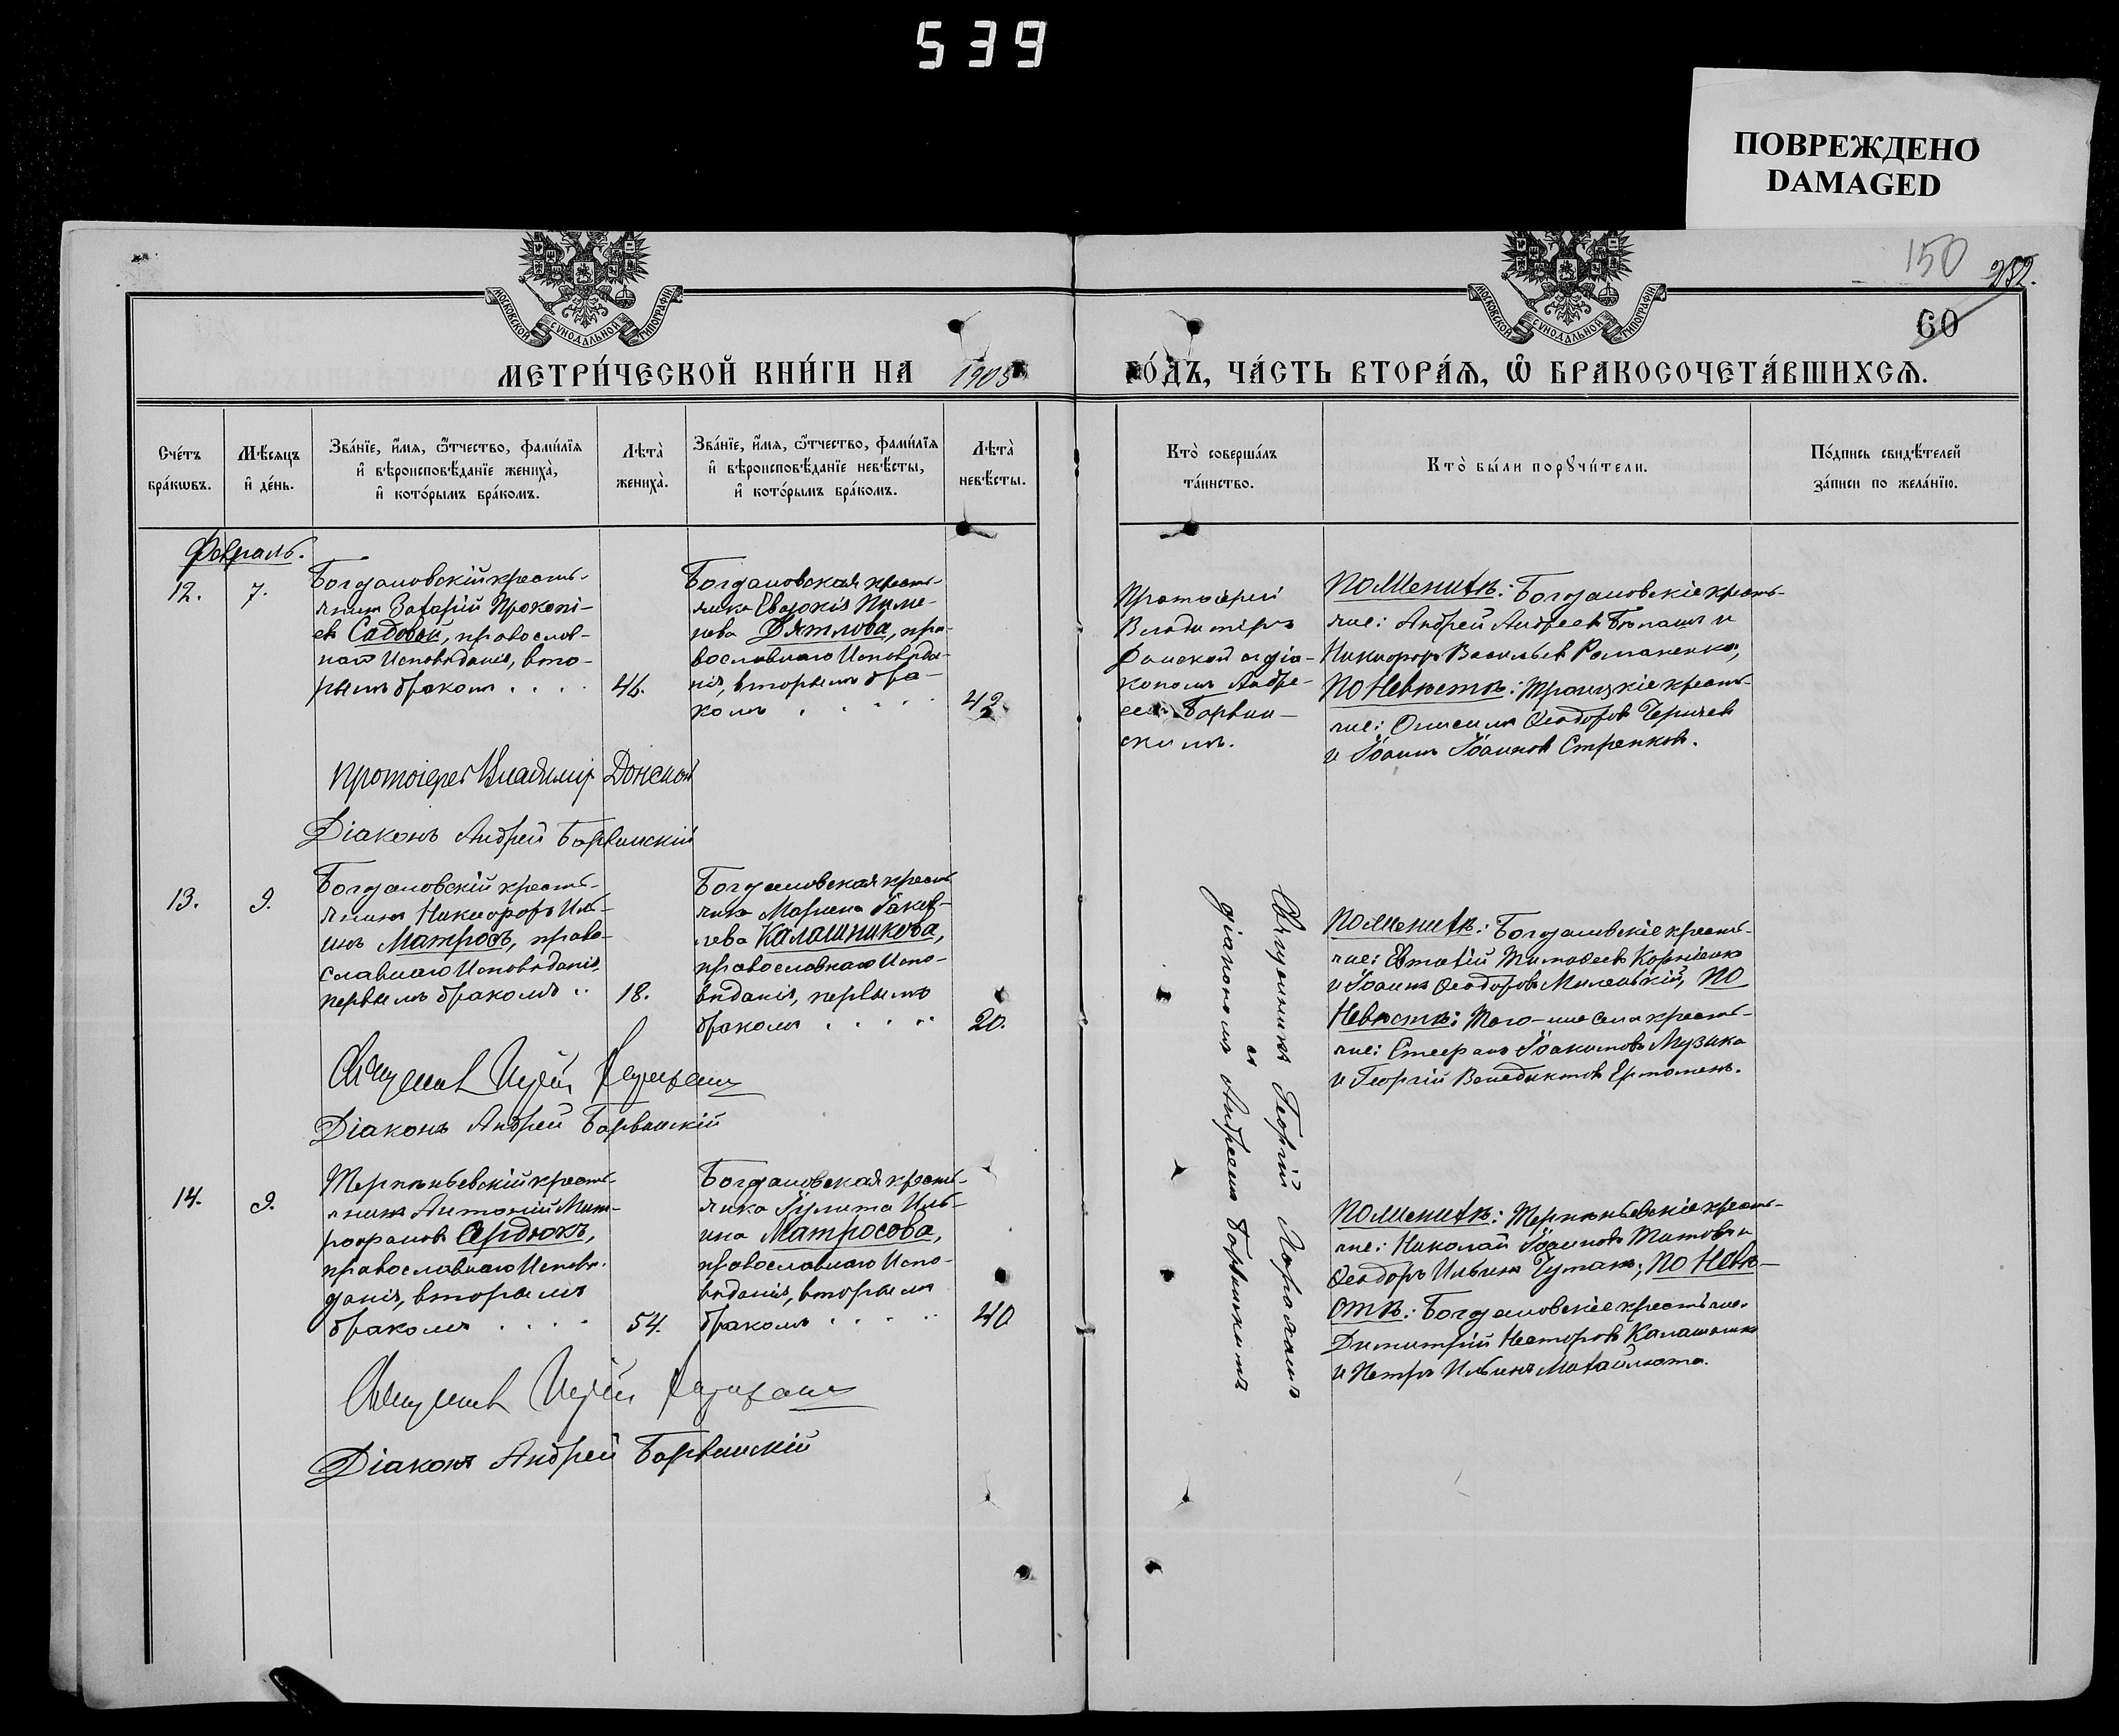 539
ПОВРЕЖДЕНО
DAMAGED
МОСКОВСКОЙ СУНОДАЛЬНОЙ ТИПОГРАФІИ
МОСКОВСКОЙ СУНОДАЛЬНОЙ ТИПОГРАФІИ
150
232.
60
МЕТРИ́ЧЕСКОЙ КНИ́ГИ НА 1905
ГО́ДЪ, ЧА́СТЬ ВТОРА́Я, Ѿ БРАКОСОЧЕТА́ВШИХСѦ.
Сче́тъ
бра́кѡвъ.
Мѣ́сяцъ
и҆ де́нь.
Зва́нїе, и҆́мя, ѻ҆́тчество, фами́лїя
и҆ вѣроисповѣ́данїе жениха̀,
и҆ кото́рымъ бра́комъ.
Лѣта̀
жениха̀.
Зва́нїе, и҆́мя, ѻ҆́тчество, фами́лїя
и҆ вѣроисповѣ́данїе невѣ́сты,
и҆ кото́рымъ бра́комъ.
Лѣта̀
невѣ́сты.
Кто̀ соверша́лъ
та́инство.
Кто̀ бы́ли порꙋчи́тели.
По́дпись свидѣ́телей
за́писи по жела́нїю.
Февраль.
12.
7.
Богдановскій кресть-
янинъ Захарій Прокопі-
евъ Садовой, православ-
наго Исповѣданія, вто-
рымъ бракомъ . . . .
46.
Богдановская кресть-
янка Евдокія Пиме-
нова Дятлова, пра-
вославнаго Исповѣда-
нія, вторымъ бра-
комъ . . . . .
42.
Протоіерей
Владиміръ
Донской съ діа-
кономъ Андре-
емъ Барвин-
скимъ.
По Женихѣ: Богдановскіе кресть-
яне: Андрей Андреевъ
Никифоръ Васильевъ Романенко,
По Невѣстѣ: Троицкіе кресть-
яне: Онисимъ Ѳеодоровъ Черняев
и Іоаннъ Іоанновъ Стрепковъ.
Протоіерей Владиміръ Донской
Діаконъ Андрей Барвинскій
13.
9.
Богдановскій кресть-
янинъ Никифоръ Иль-
инъ Матросъ, право-
славнаго Исповѣданія,
первымъ бракомъ ..
18.
Богдановская кресть-
янка Марина Іаков-
лева Калашникова,
православнаго Испо-
вѣданія, первымъ
бракомъ . . . . ..
20.
Священникъ Георгій
съ
діакономъ Андреемъ Барвинскимъ
По Женихѣ: Богдановскіе кресть-
яне: Евтихій Тимоѳеевъ Корніенко
и Іоаннъ Ѳеодоровъ Миленькій, По
Невѣстѣ: Того-же Села кресть-
яне: Стефанъ Іоакимовъ Музыка
и Георгій Венедиктовъ Ермоленк.
Священникъ
Діаконъ Андрей Барвинскій
14.
9.
Терпѣньевскій кресть-
янинъ Антоній Мит-
рофановъ Сердюкъ,
православнаго Исповѣ-
данія, вторымъ
бракомъ . . . .
54.
Богдановская кресть-
янка Іулита Иль-
ина Матросова,
православнаго Испо-
вѣданія, вторымъ
бракомъ . . . . ..
40
По Женихѣ: Терпѣньевскіе кресть-
яне: Николай Іоанновъ Титовъ и
Ѳеодоръ Ильинъ Чутакъ; По Невѣ-
стѣ: Богдановскіе крестьяне:
Димитрій Несторовъ
и Петръ Ильинъ Михайлюта.
Священникъ
Діаконъ Андрей Барвинскій